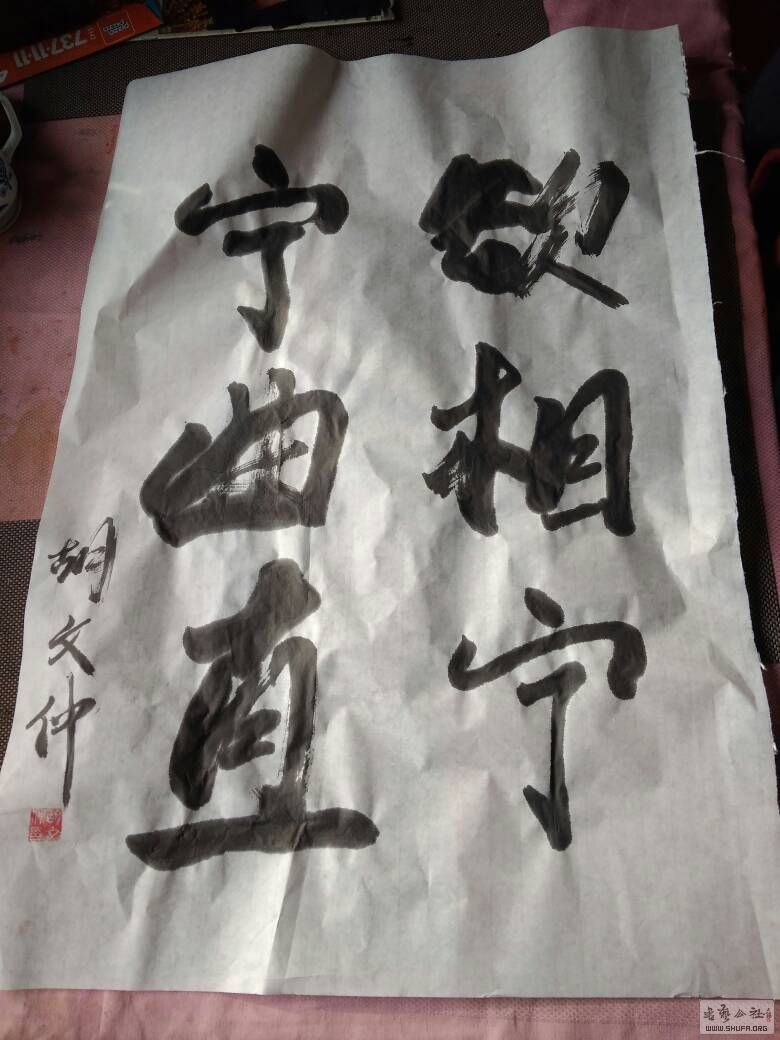 欲相宁
宁曲直
胡文仲
737-11-11
WWW.SHUFA.ORG